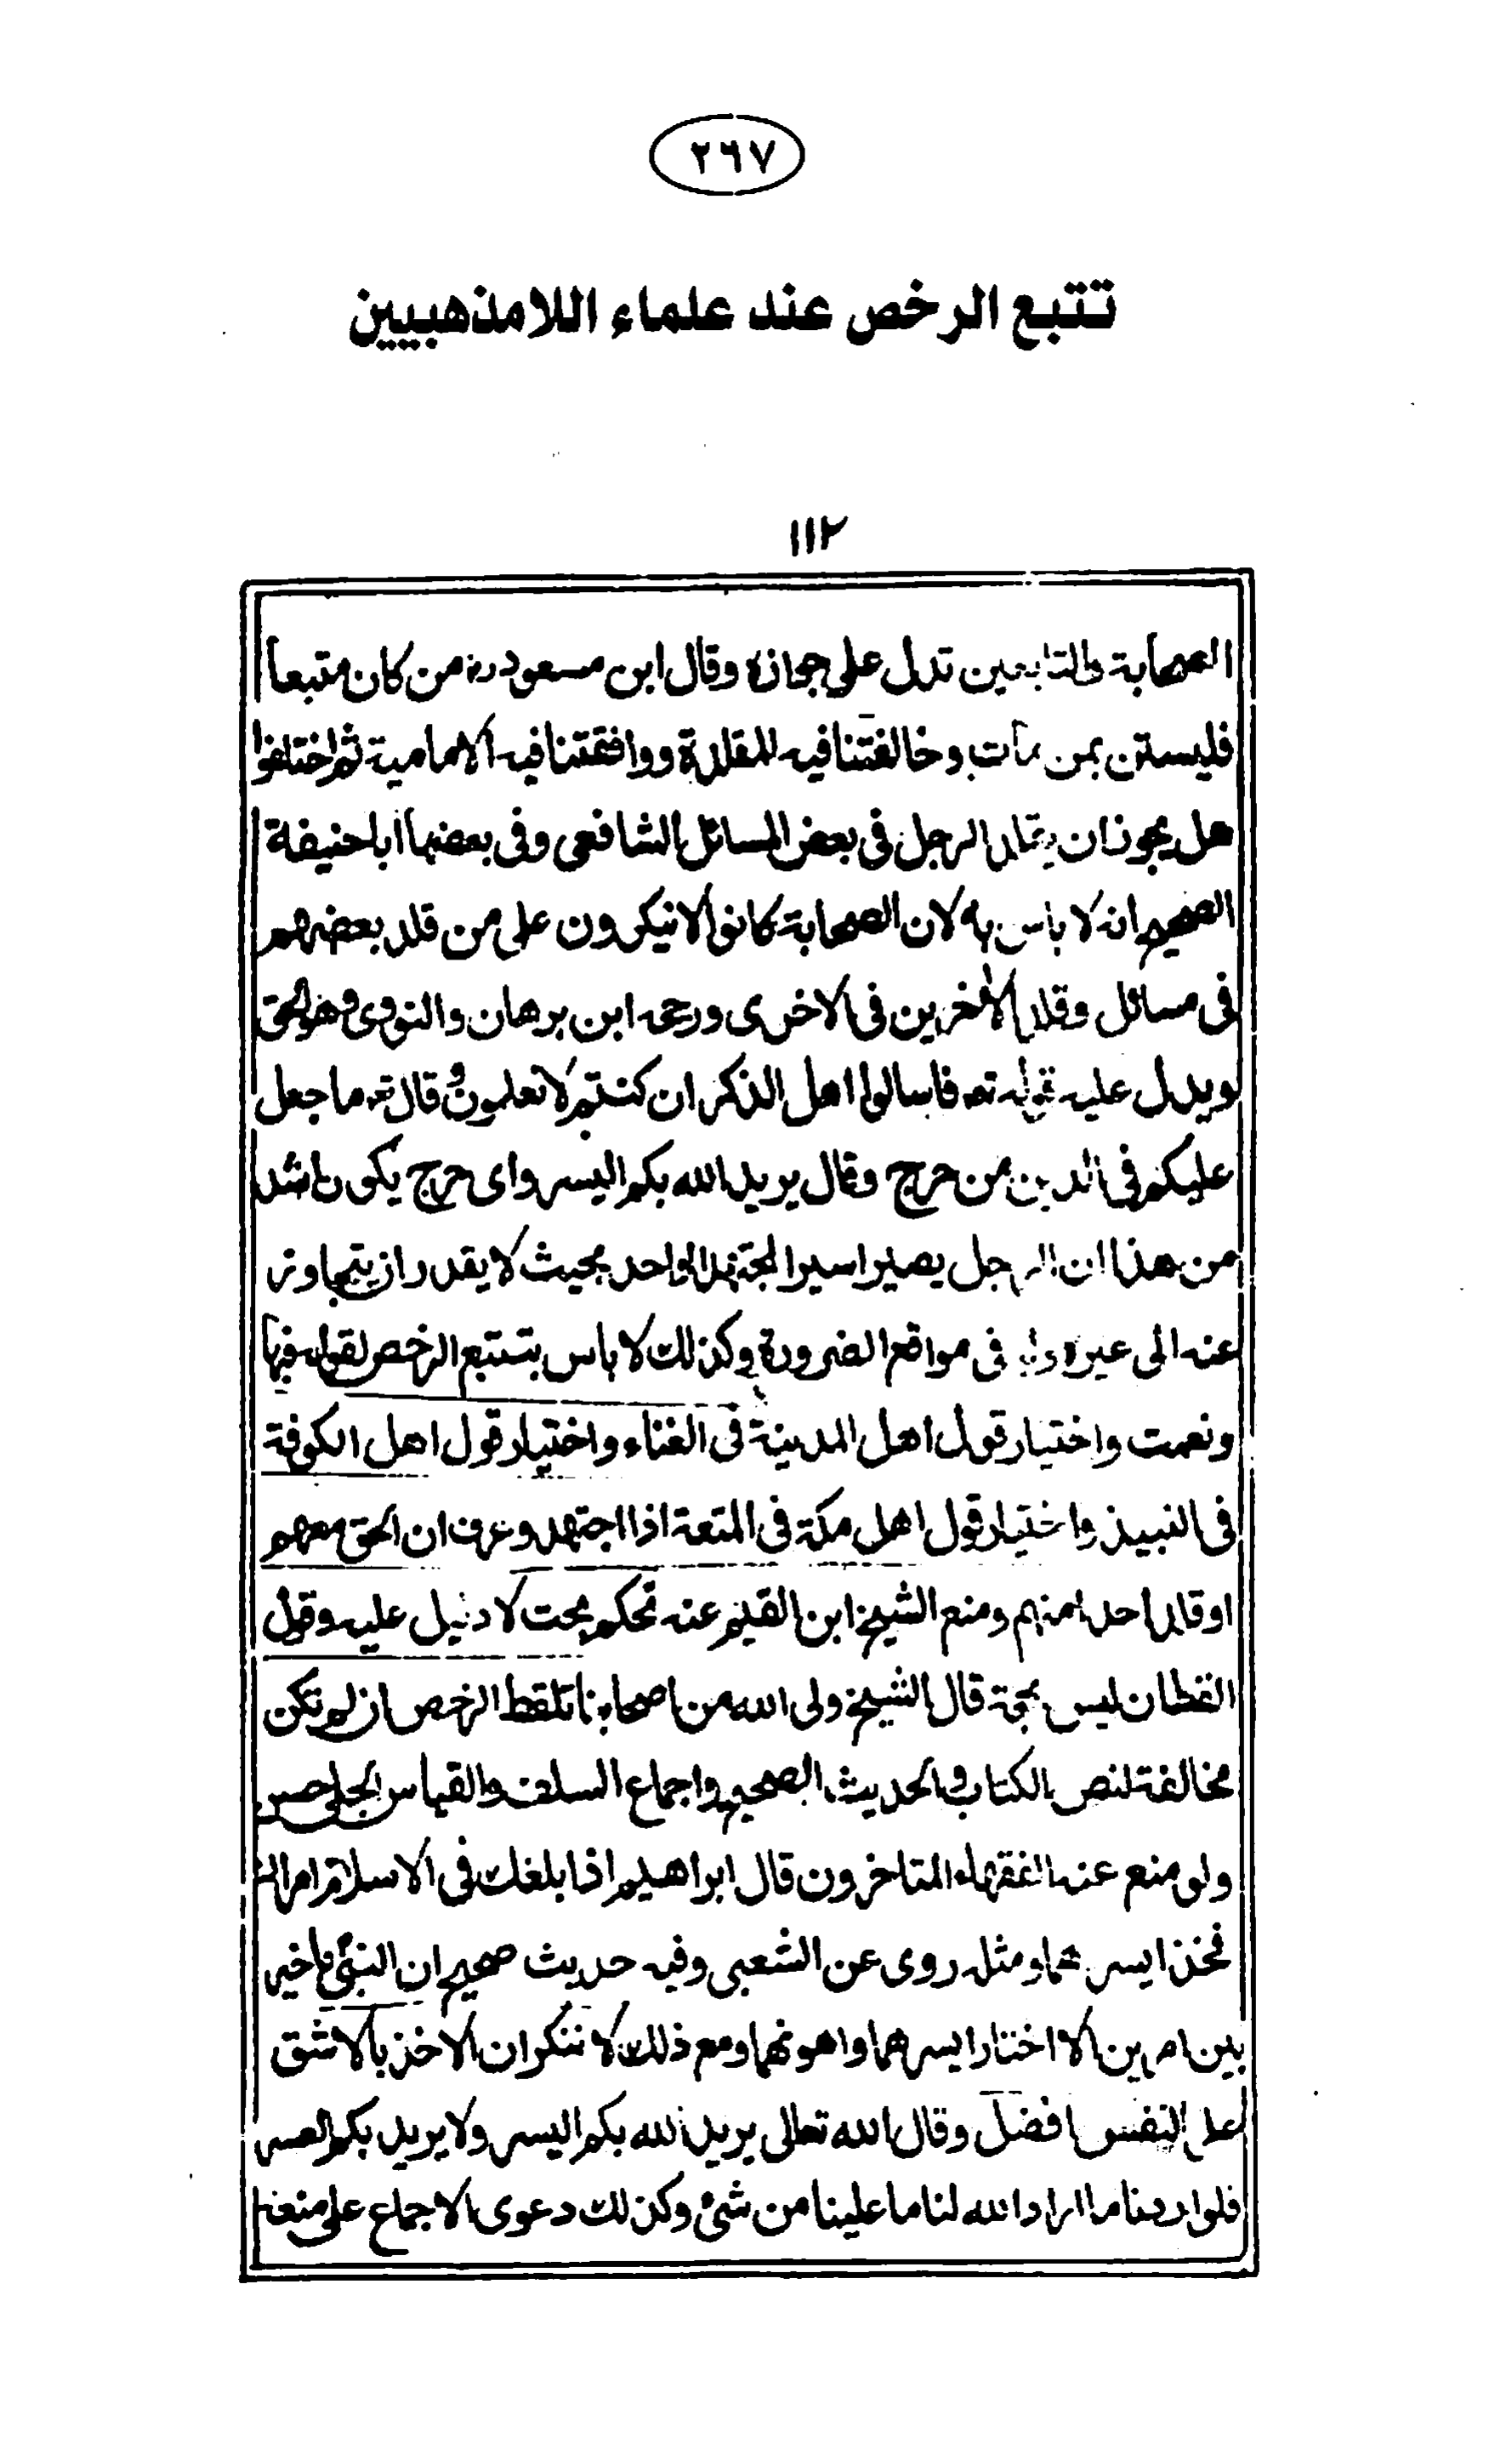 ٢٦٧
تتبع الرخص عند علماء اللامذهبيين
١١٢
الصحابة والتابعين تدل على جوازه وقال ابن مسعود رض من كان متبعا
فليستن بمن مات وخالفتنا فيه المقلدة ووافقتنا فيه الامامية ثم اختلفوا
هل يجوز ان يقلد الرجل فى بعض المسائل الشافعى وفى بعضها ابا حنيفة
الصحيح انه لا باس به لان الصحابة كانوا لا ينكرون على من قلد بعضهم
فى مسائل وقلد الأخرين فى الاخرى ورجحه ابن برهان والنووى وهو الحق
ويدل عليه قوله تعه فاسالوا اهل الذكر ان كنتم لا تعلمون وقال تعه ما جعل
عليكم فى الدين من حرج وقال يريد الله بكم اليسر واى حرج يكون اشد
من هذا ان الرجل يصير اسير المجتهد الواحد بحيث لا يقدر ان يتجاوز
عنه الى غيره ولو فى مواقع الضرورة وكذلك لا باس بتتبع الرخص لقوله فبها
ونعمت واختيار قول اهل المدينة فى الغناء واختيار قول اهل الكوفة
فى النبيذ واختيار قول اهل مكة فى المتعة اذا اجتهد وعرف ان الحق معهم
او قلد احدا منهم ومنع الشيخ ابن القيم عنه تحكم بحت لا دليل عليه وقول
القطان ليس بحجة قال الشيخ ولى الله من اصحابنا تلقط الرخص ان لم تكن
مخالفة لنص الكتاب والحديث الصحيح واجماع السلف والقياس الجلى حسن
ولو منع عنه الفقهاء المتاخرون قال ابراهيم اذا بلغك فى الاسلام امران
فخذ ايسرهما ومثله روى عن الشعبى وفيه حديث صحيح ان النبى ما خير
بين امرين الا اختار ايسرهما واهونهما ومع ذلك لا ننكر ان الاخذ بالاشق
على النفس افضل وقال الله تعالى يريد الله بكم اليسر ولا يريد بكم العسر
فلو اردنا ما اراد الله لنا ما علينا من شئ وكذلك دعوى الاجماع على منعه